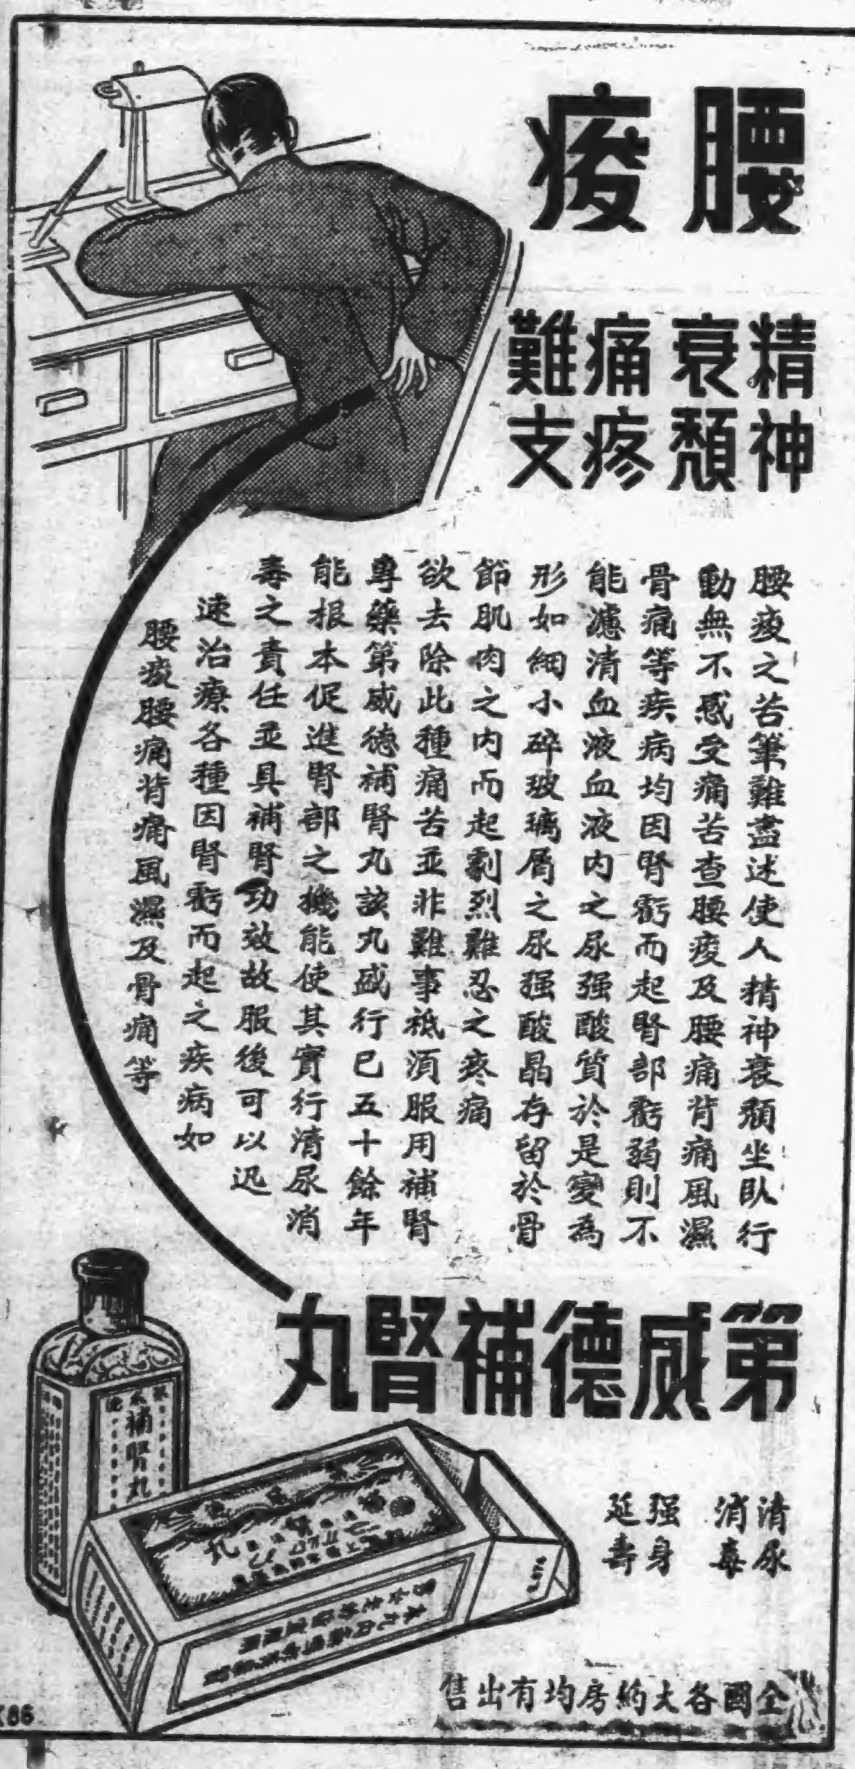 腰痠
精神
衰頹
痛疼
難支
腰痠之苦筆難盡述使人精神衰頹坐臥行
動無不感受痛苦查腰痠及腰痛背痛風濕
骨痛等疾病均因腎虧而起腎部虧弱則不
能濾清血液血液內之尿强酸質於是變為
形如細小碎玻璃屑之尿强酸晶存留於骨
節肌肉之內而起劇烈難忍之疼痛
欲去除此種痛苦並非難事祗須服用補腎
專藥第威德補腎丸該丸盛行已五十餘年
能根本促進腎部之機能使其實行清尿消
毒之責任並具補腎功效故服後可以迅
速治療各種因腎虧而起之疾病如
腰痠腰痛背痛風濕及骨痛等
第威德補腎丸
補腎丸
清尿
消毒
强身
延壽
全國各大葯房均有出售